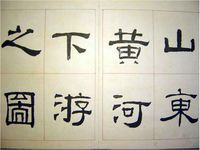 山東
黄河
下游
之圖